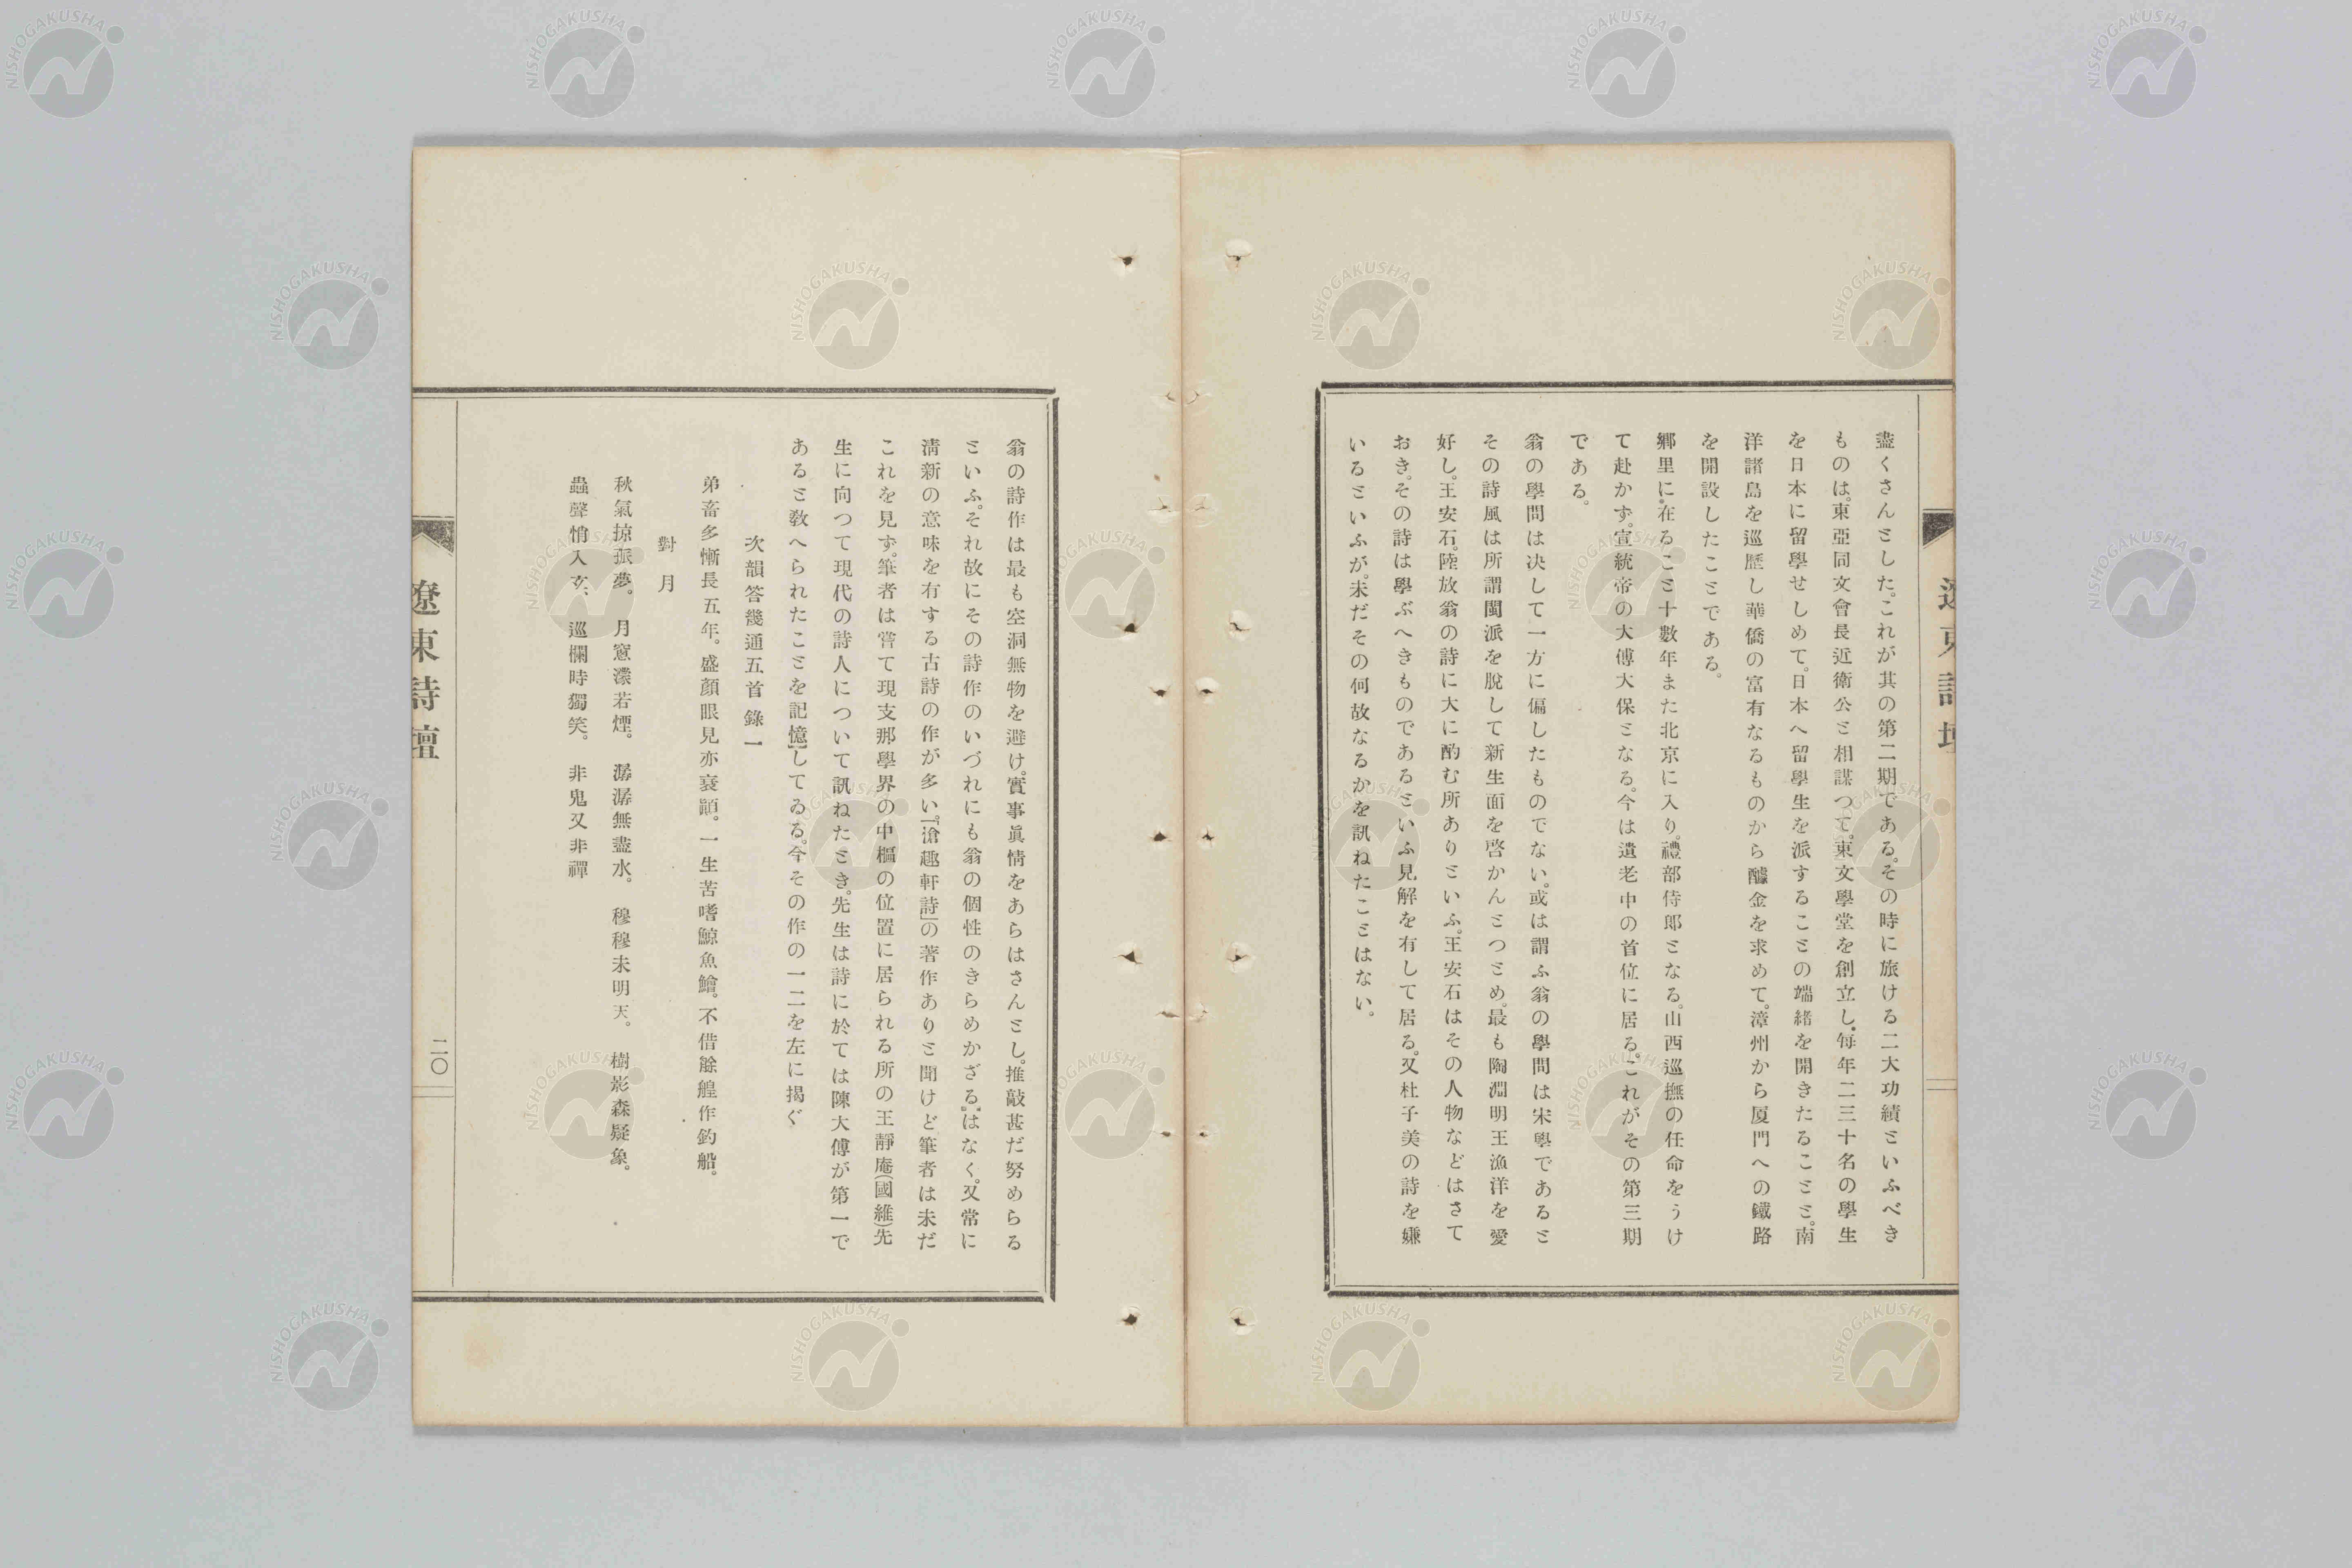 盡くさんとした。これが其の第二期である。その時に旅ける二大功績といふべき
ものは、東亞同文會長近衛公と相謀つて、東文學堂を創立し、每年二三十名の學生
を日本に留學せしめて、日本へ留學生を派することの端緒を開きたることと、南
洋諸島を巡歷し華僑の富有なるものから醵金を求めて、漳州から厦門への鐵路
を開設したことである。
鄉里に在ること十數年また北京に入り、禮部侍郎となる。山西巡撫の任命をうけ
て赴かず。宣統帝の大傅大保となる。今は遺老中の首位に居る。これがその第三期
である。
翁の學問は決して一方に偏したものでない。或は謂ふ翁の學問は宋學であると
その詩風は所謂閩派を脫して新生面を啓かんとつとめ、最も陶淵明王漁洋を愛
好し、王安石、陸放翁の詩に大に酌む所ありといふ。王安石はその人物などはさて
おき、その詩は學ぶへきものであるといふ見解を有して居る。又杜子美の詩を嫌
いるといふが、未だその何故なるかを訊ねたことはない。
翁の詩作は最も空洞無物を避け、實事眞情をあらはさんとし、推敲甚だ努めらる
といふ。それ故にその詩作のいづれにも翁の個性のきらめかざるはなく、又常に
淸新の意味を有する古詩の作が多い。「滄趣軒詩」の著作ありと聞けど筆者は未だ
これを見ず。筆者は嘗て現支那學界の中樞の位置に居られる所の王靜庵(國維)先
生に向つて現代の詩人について訊ねたとき、先生は詩に於ては陳大傅が第一で
あると敎へられたことを記憶してゐる。今その作の一二を左に揭ぐ
次韻答畿通五首錄一
弟畜多慚長五年。盛顏眼見亦衰顚。一生苦嗜鯨魚鱠。不借艅艎作釣船。
對月
秋氣掠孤夢。月窻濛若煙。潺潺無盡水。穆穆未明天。樹影森疑象。
蟲聲悄入玄、巡欄時獨笑。非鬼又非禪
遼東詩壇
二〇